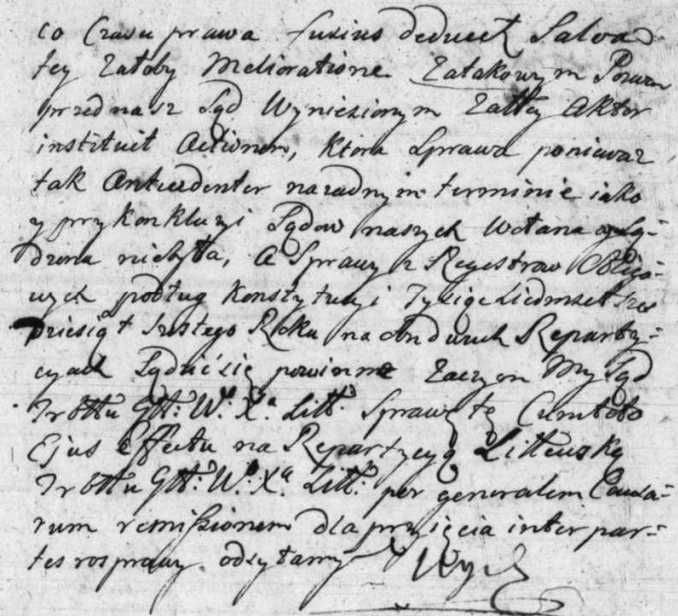 co Czasu prawa fusius deducet Salva
tey Załoby Melioratione Zatakowym Pozwem
przed nasz Sąd Wyniesionym Załłcy Aktor
instituit Actionem, ktora Sprawa poniewaz
tak Antecedenter na zadnym terminie iako
y przy konkluzyi Sądow naszych Wołana y Są-
dzona niebyła, a Sprawy z Regestrow Obligo-
wych podług Konstytucyi Tysiąc Siedmset sześ
dziesiąt szostego Roku na obudwuch Reparty-
cyach Sądzić się powinne Zaczym My Sąd
Trbłłu Głł: W: Xa Litt: Sprawę tę Cum toto
Ejus Effectu na Repartycyą Littewską
Trbłłu Głł: W: Xa Litt: per generalem Causa-
rum remissionem dla przyięcia inter par-
tes rosprawy odsyłamy